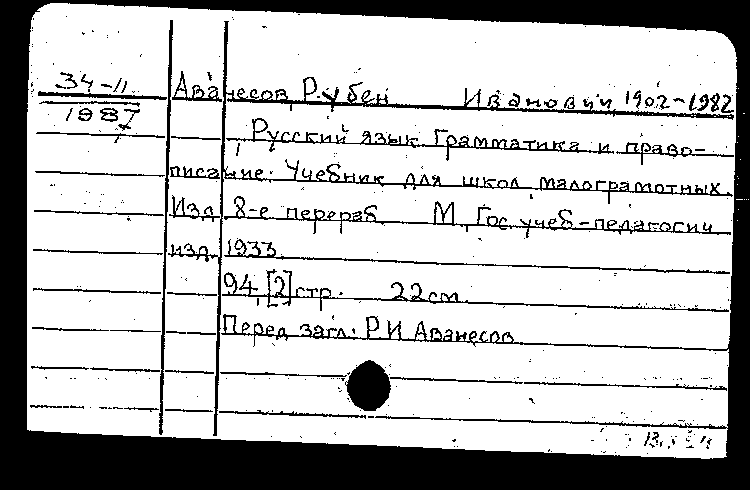 34-11
1987
Аванесов, Рубен Иванович, 1902-1982
Русский язык. Грамматика и право-
писание: Учебник для школ малограмотных.
Изд. 8-е перераб. М., Гос. учеб-педагогич.
изд. 1933.
94, [2] стр. 22 см.
Перед загл.: Р.И. Аванесов